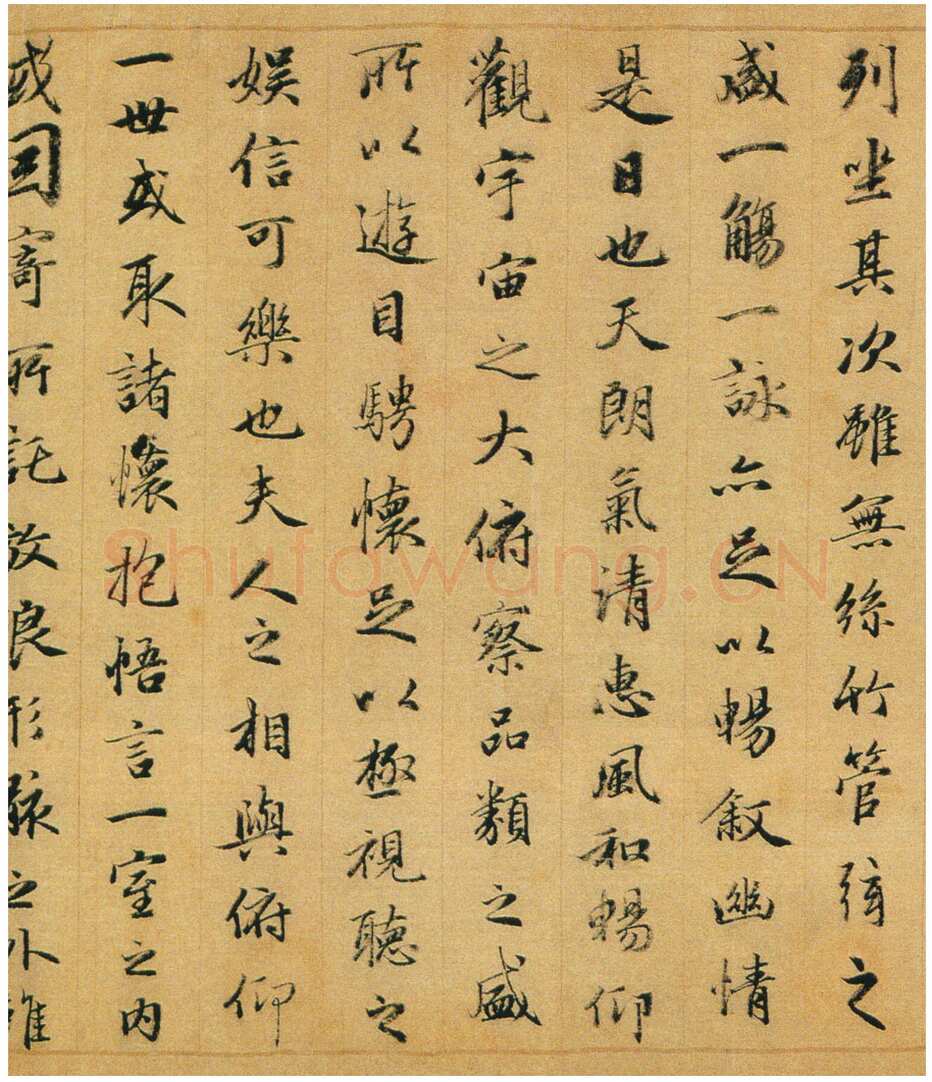 列坐其次雖無絲竹管弦之
盛一觴一詠亦足以暢敘幽情
是日也天朗氣清惠風和暢仰
觀宇宙之大俯察品類之盛
所以遊目騁懷足以極視聽之
娛信可樂也夫人之相與俯仰
一世或取諸懷抱悟言一室之内
或因寄所託放浪形骸之外雖
Shufawang.CN